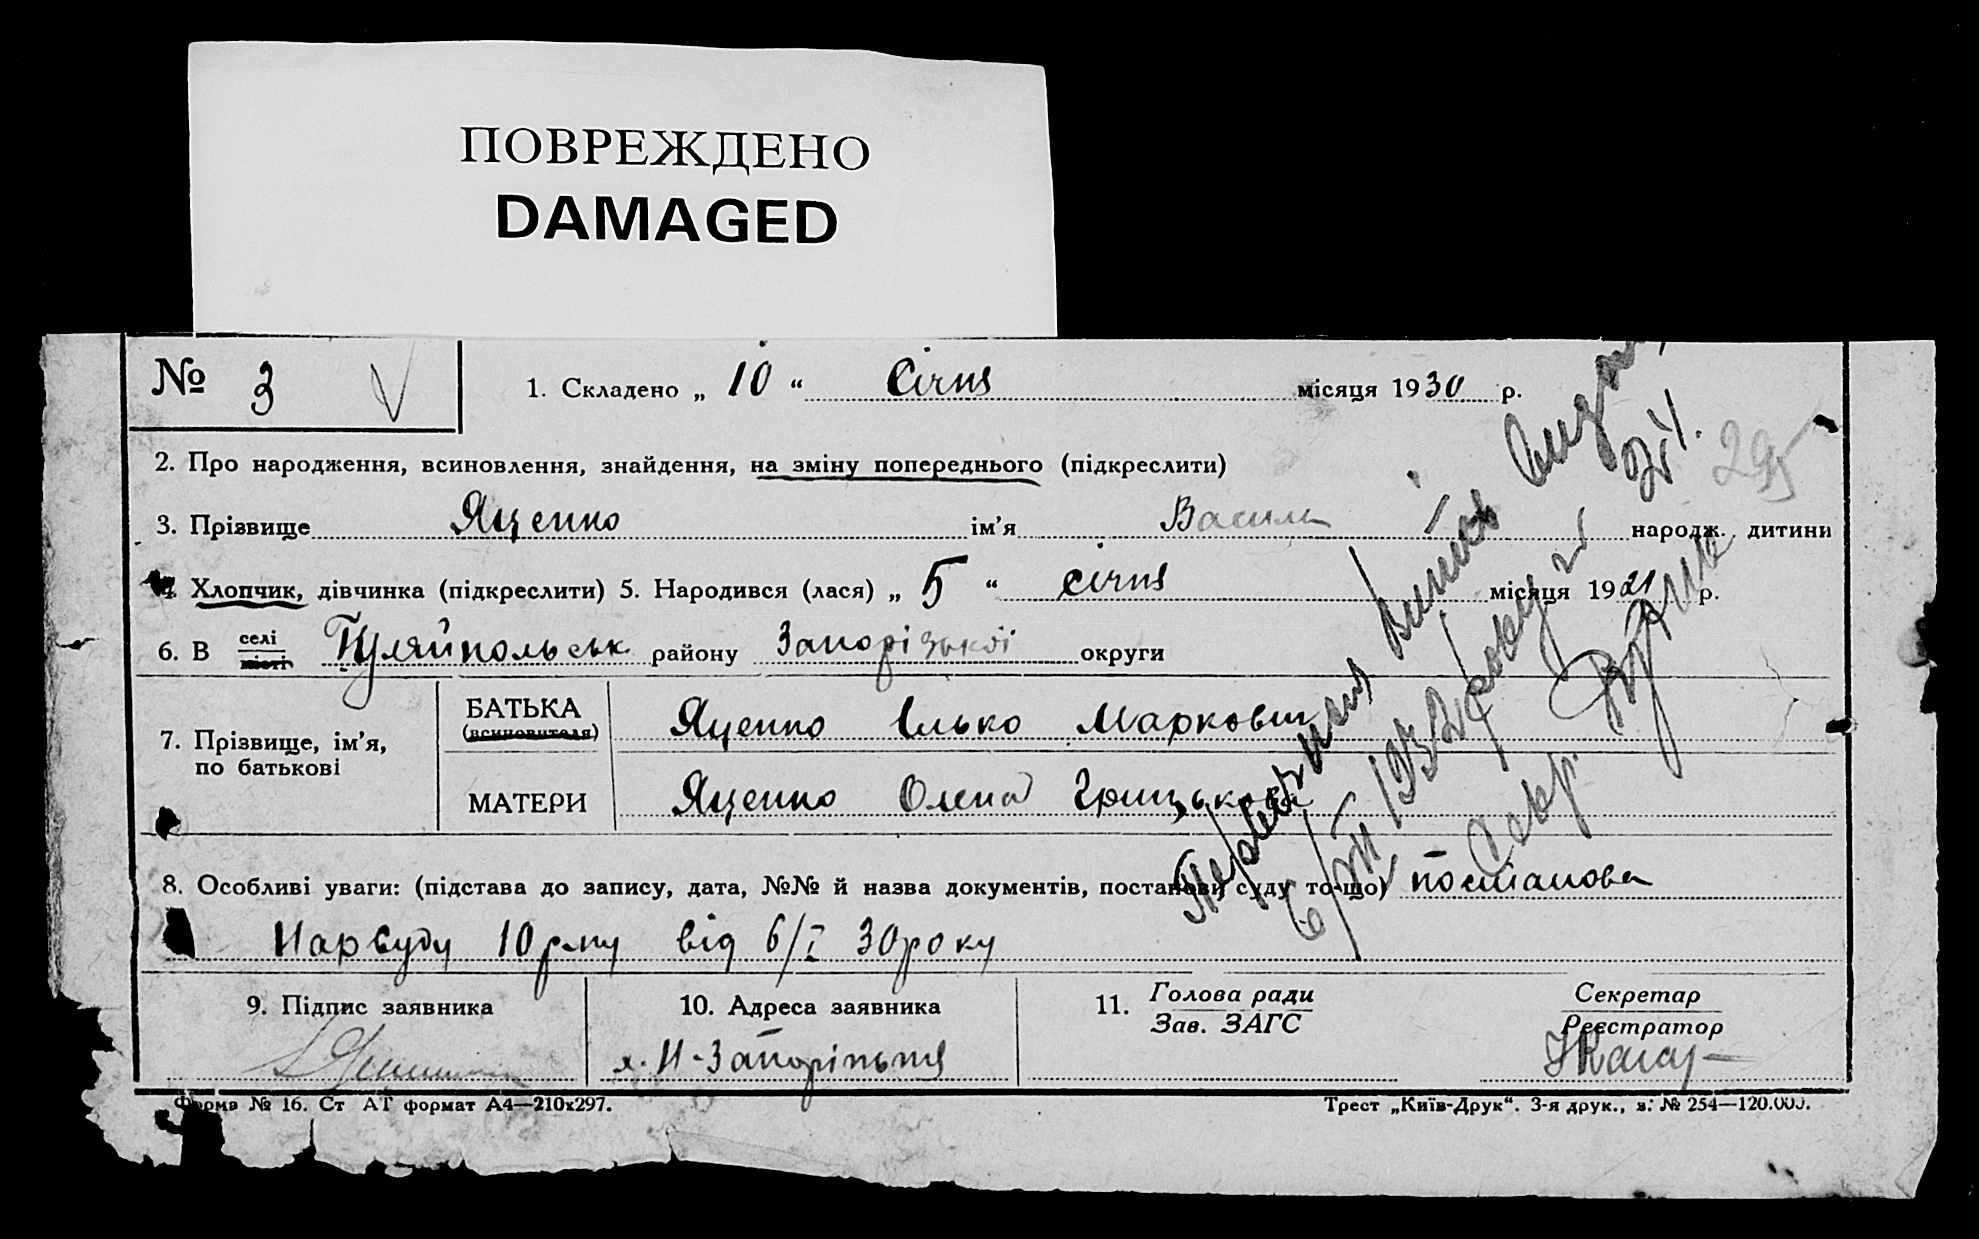 ПОВРЕЖДЕНО
DAMAGED
№ 3 V
1. Складено „ 10 “ Січня місяця 1930 р.
2. Про народження, всиновлення, знайдення, на зміну попереднього (підкреслити)
295
3. Прізвище Яценко ім’я Василь народж. дитини
4. Хлопчик, дівчинка (підкреслити) 5. Народився (лася) „ 5 “ січня місяця 1921 р.
6. В селі місті Гуляйпольськ. району Запорізької округи
7. Прізвище, ім’я, по батькові
БАТЬКА (всиновителя) Яценко Ілько Маркович
МАТЕРИ Яценко Олена Грицьков
8. Особливі уваги: (підстава до запису, дата, №№ й назва документів, постанови суду то-що) постанова
Нарсуду 10 від 6/I 30 року
6/III 1932 року
Секр.
9. Підпис заявника
10. Адреса заявника
11. Голова ради Зав. ЗАГС
Секретар Реєстратор
Форма № 16. Ст АТ формат А4—210х297.
Трест „Київ-Друк“. 3-я друк., з. № 254—120.000.